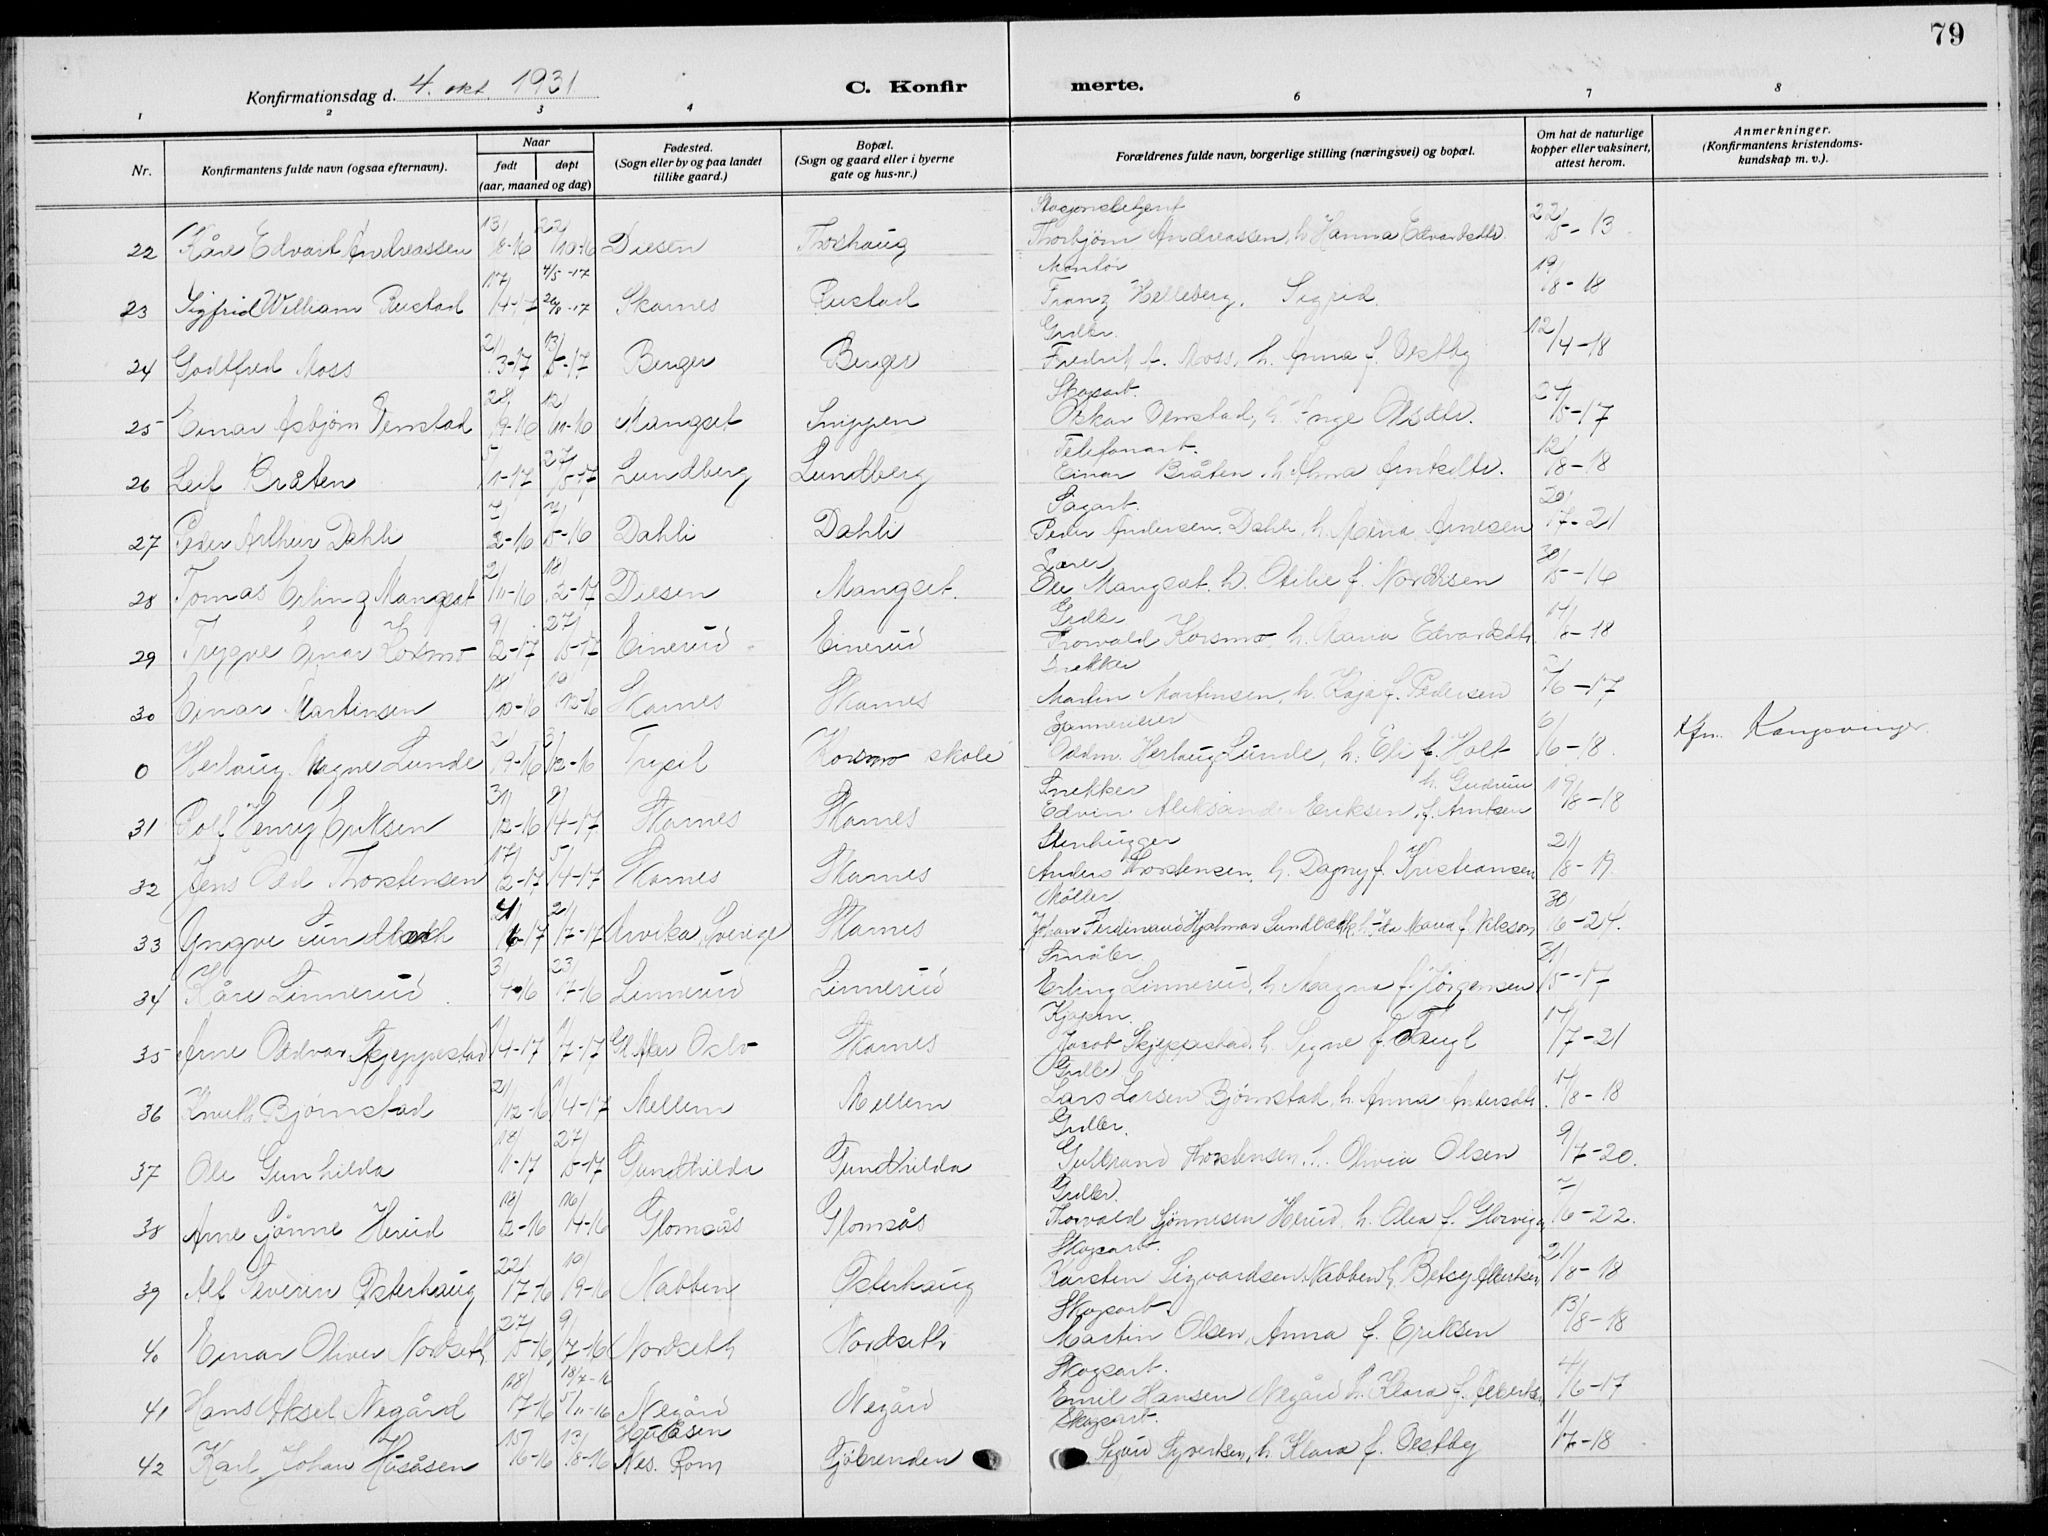 79
Konfirmationsdag d. 4. okt. 1931
C. Konfir merte.
1 2 3 4 6 7 8
Nr.
Konfirmantens fulde navn (ogsaa efternavn).
Naar
født
døpt
(aar, maaned og dag)
Fødested.
(Sogn eller by og paa landet
tillike gaard.)
Bopæl.
(Sogn og gaard eller i byerne
gate og hus-nr.)
Forældrenes fulde navn, borgerlige stilling (næringsvei) og bopæl.
Om hat de naturlige
kopper eller vaksinert,
attest herom.
Anmerkninger.
(Konfirmantens kristendoms-
kundskap m. v.).
22 Kåre Edvart Andreassen 13/8-16 22/10-16 Disen Thorshaug Thorbjørn Andreassen, h. Hanna Edvardsdtr. 22/5-13
Montør
4/5-17
23 Sigfrid William Rustad 17/4-17 26/8-17 Skarnes Rustad Franz Helleberg, Sigrid 19/8-18
Grdbr.
24 Godtfred Moss 21/3-17 13/5-17 Berger Berger Fredrik A. Moss, h. Anna f. Østby 12/4-18
Skogsarb.
25 Einar Asbjørn Venstad 28/9-16 12/11-16 Mangset Snippen Oskar Venstad, h. Inge Olsdtr. 27/5-17
Telefonarb.
26 Leif Bråten 5/1-17 27/5-17 Lundberg Lundberg Einar Bråten, h. Alma Arntsdtr. 12/8-18
Sagarb.
27 Peder Arthur Dahli 7/2-16 7/5-16 Dahli Dahli Peder Andersen Dahli, h. Mina Arnesen 20/7-21
Lærer
28 Tomas Erling Mangset 2/11-16 18/2-17 Disen Mangset. Ole Mangset, h. Otilie f. Nordksen 30/5-16
Grdbr
29 Trygve Einar Korsmo 9/2-17 27/5-17 Einerud Einerud Thorvald Korsmo, h. Maria Edvardsdtr. 17/8-18
Snekker
30 Einar Martinsen 18/10-16 10/12-16 Skarnes Skarnes Martin Martinsen, h. Kaja f. Pedersen 2/6-17
0 Herlaug Magne Lunde 2/9-16 3/12-16 Trysil Korsmo skole Oddm. Herlaug Lunde, h. Eli f. Holt 6/6-18. Kfn. Kongsvinger.
Snekker h. Gudrun
31 Rolf Henry Eriksen 31/12-16 9/4-17 Skarnes Skarnes Edvin Aleksander Eriksen, f. Arntsen 19/8-18
Stenhugger
32 Jens Odd Thorstensen 17/2-17 5/4-17 Skarnes Skarnes Anders Thorstensen, h. Dagny f. Kristiansen 21/8-19
Møller
33 Yngve Lundbæck 4/6-17 2/7-17 Arvika, Sverige Skarnes Johan Ferdinand Hjalmar Lundbæck, h. Ida Maria f. Nilsson 30/6-24.
Småbr.
34 Kåre Linnerud 3/4-16 23/7-16 Linnerud Linnerud Erling Linnerud, h. Magna f. Jørgensen 31/5-17
Kjøpm.
35 Arne Oddvar Skjeppestad 1/4-17 1/7-17 Gl. Aker Oslo Skarnes Jacob Skjeppestad, h. Signe f. Taugl 17/7-21
Grdbr.
36 Knuth Bjørnstad 2/12-16 1/4-17 Mellem Mellem Lars Larsen Bjørnstad, h. Anna Andersdtr. 17/8-18
Grdbr.
37 Ole Gunhilda 18/1-17 27/5-17 Gundhilda Gundhilda Gulbrand Thorstensen, h. Olivia Olsen 9/7-20.
Grdbr.
38 Arne Jønne Herud 18/2-16 16/4-16 Glomsås Glomsås Thorvald Jønnesen Herud, h. Olea f. Glorvigen 7/6-22.
Skogsarb.
39 Alf Severin Østerhaug 22/7-16 10/9-16 Nabben Østerhaug Karsten Sigvardsen Nabben, h. Betsy Albertsen 21/8-18
Skogsarb.
40 Einar Oliver Nordseth 27/5-16 9/7-16 Nordseth Nordseth Martin Olsen, Anna f. Eriksen 13/8-18
Skogsarb.
18/7-16
41 Hans Aksel Negård 18/7-16 5/11-16 Negård Negård Emil Hansen Negård, h. Klara f. Albertsen 4/6-17
Skogsarb.
Husåsen
42 Karl Johan Husåsen 15/6-16 13/8-16 Nes. Rom Sjøbrenden Sigurd Syvertsen, h. Klara f. Østby 1/7-18